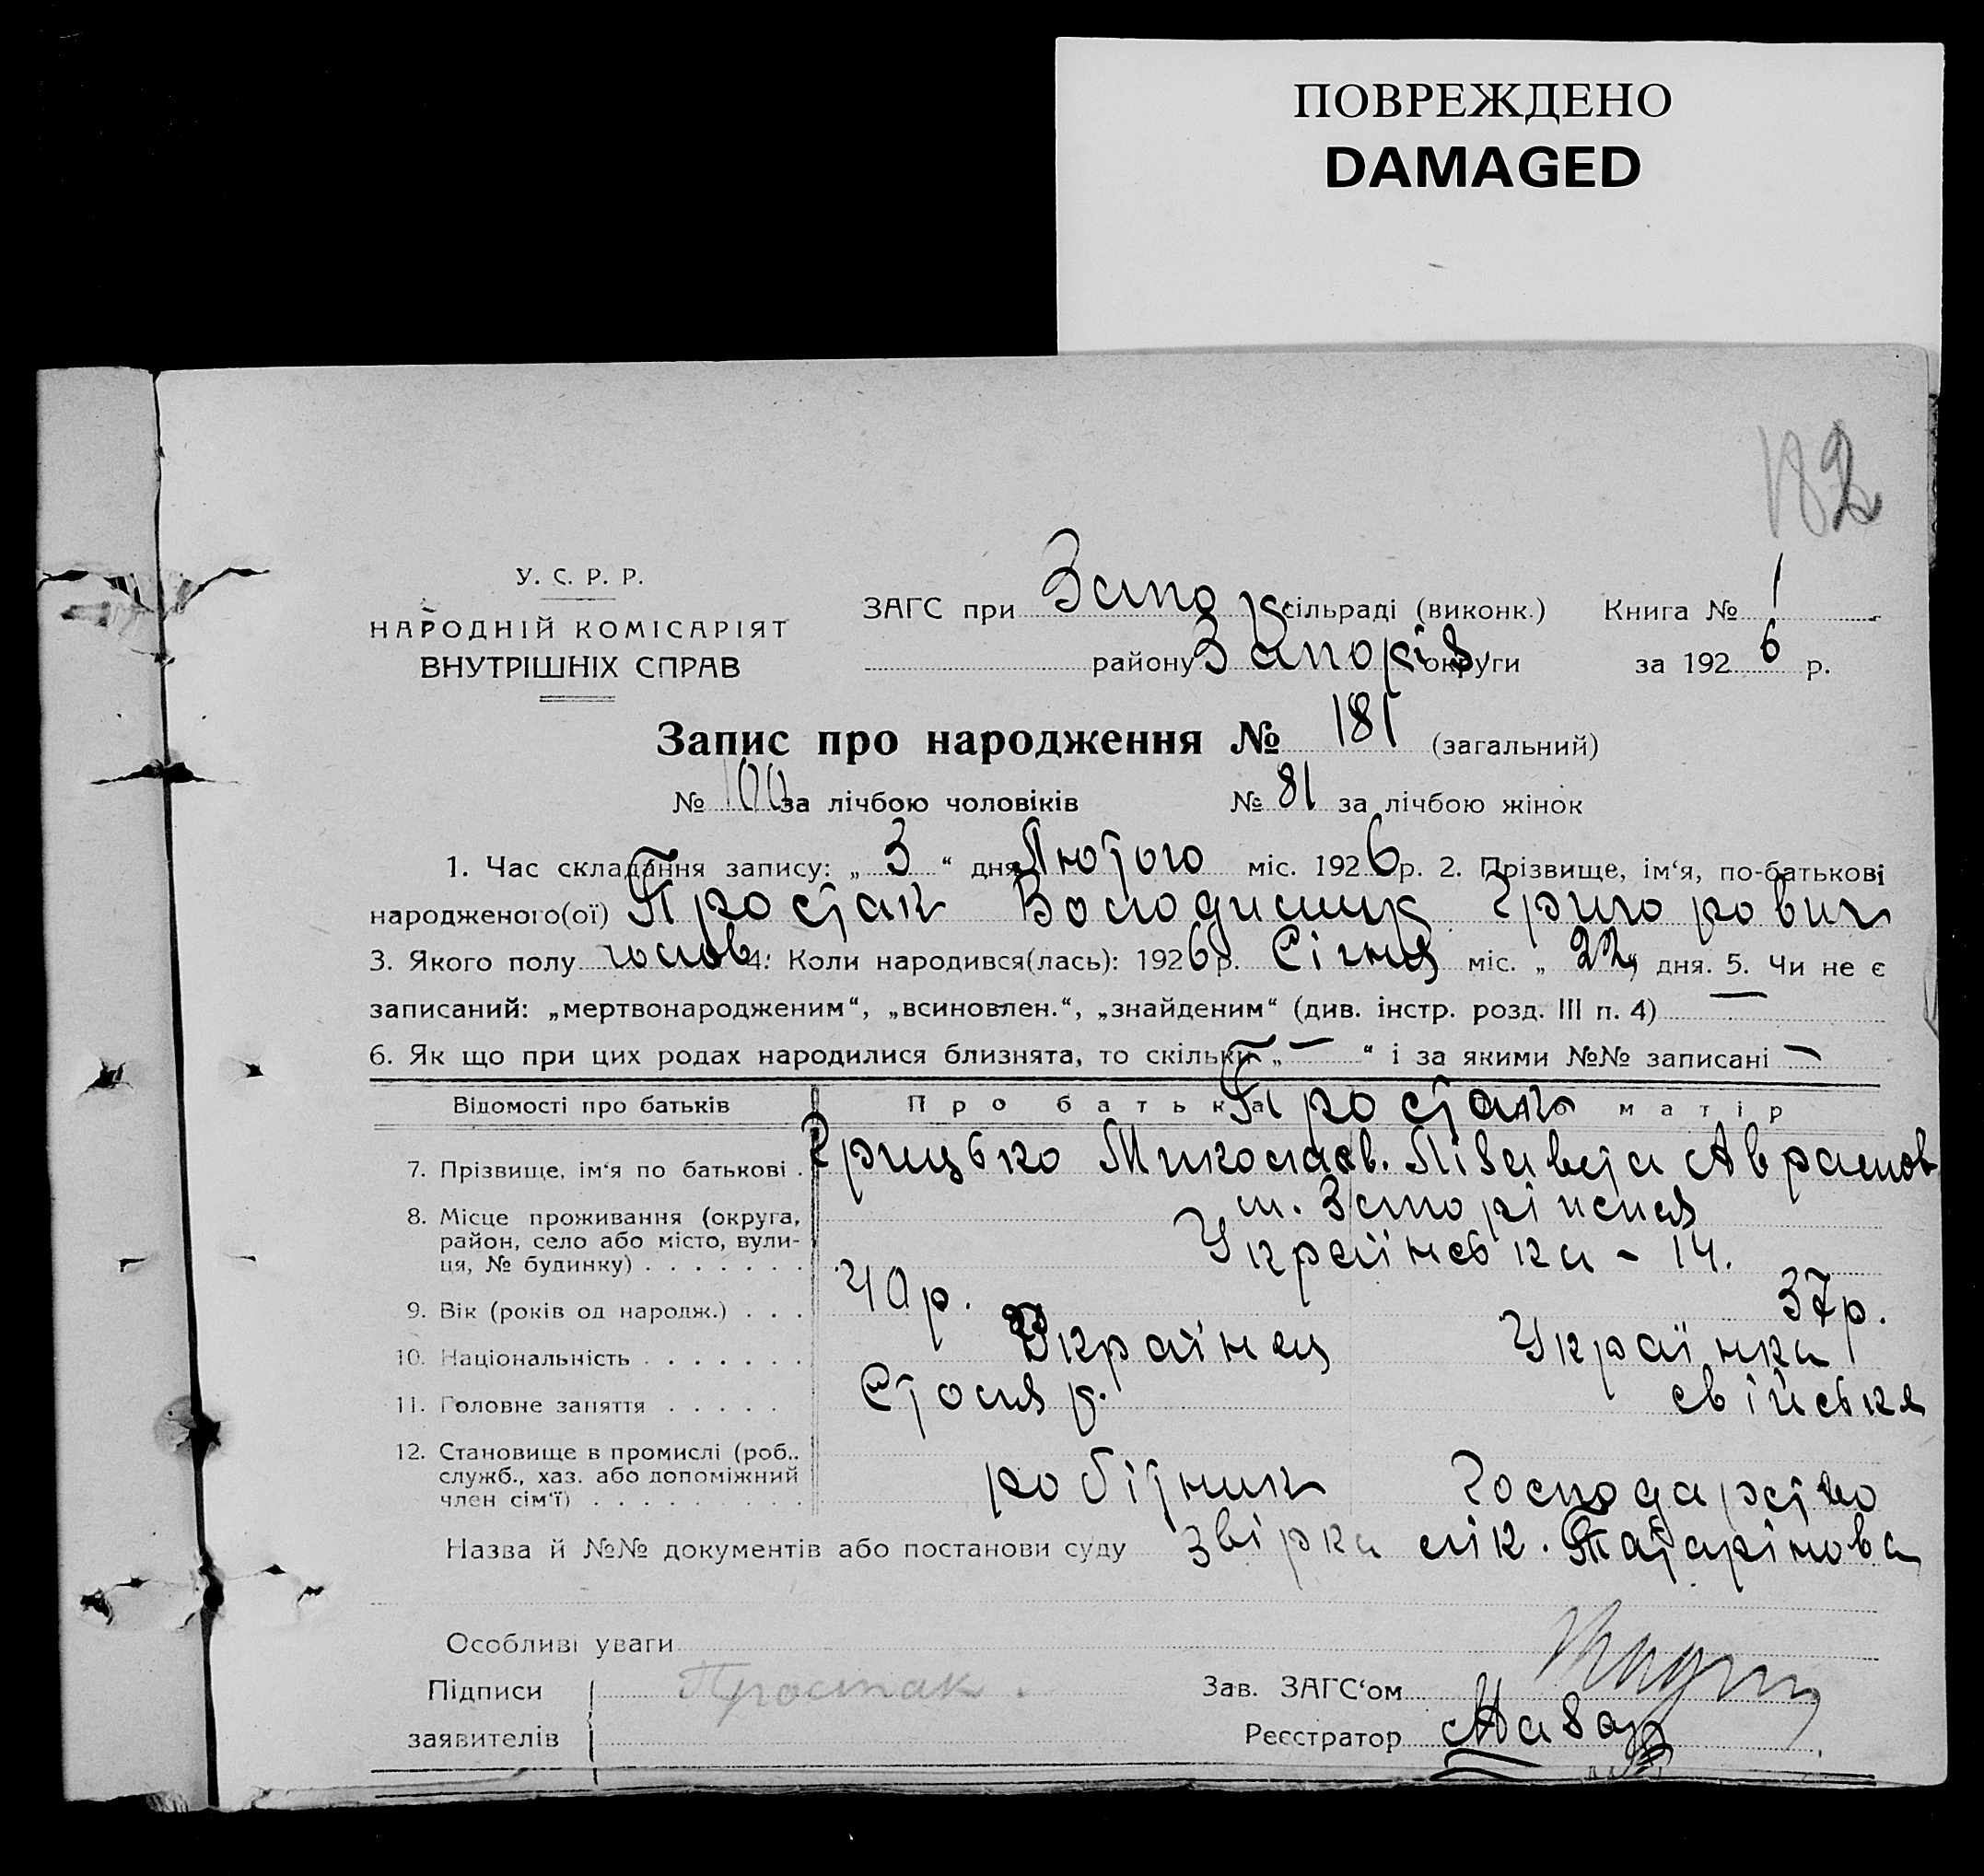 ПОВРЕЖДЕНО
DAMAGED
182
У. С. Р. Р.
НАРОДНІЙ КОМІСАРІЯТ
ВНУТРІШНІХ СПРАВ
ЗАГС при Запор. сільраді (виконк.) Книга № 1
району Запоріз. округи за 1926 р.
Запис про народження № 181 (загальний)
№ 100 за лічбою чоловіків № 81 за лічбою жінок
1. Час складання запису: „ 3 “ дня Лютого міс. 1926 р. 2. Прізвище, ім‘я, по-батькові
народженого(ої) Простак Володимир Григорович
3. Якого полу чолов. 4. Коли народився(лась): 1926 р. Січня міс. „ 22 „ дня. 5. Чи не є
записаний: „мертвонародженим“, „всиновлен.“, „знайденим“ (див. інстр. розд. III п. 4) —
6. Як що при цих родах народилися близнята, то скільки „ — “ і за якими №№ записані —
Відомості про батьків Про батька Простак матір
7. Прізвище, ім‘я по батькові . Грицько Миколаєв. Лізавета Аврамов
8. Місце проживання (округа, м. Запоріжжя
район, село або місто, вули- Українська - 14.
ця, № будинку) . . . . . . .
9. Вік (років од народж.) . . . 40 р. 37 р.
10. Національність . . . . . . . Українец Українка
11. Головне заняття . . . . . Столяр. свійське
12. Становище в промислі (роб..
служб., хаз. або допоміжний робітник господарство
член сім‘ї) . . . . . . . . .
Назва й №№ документів або постанови суду звірка лік. Татарінова
Особливі уваги
Підписи Простак . Зав. ЗАГС‘ом
заявителів Реєстратор Назар